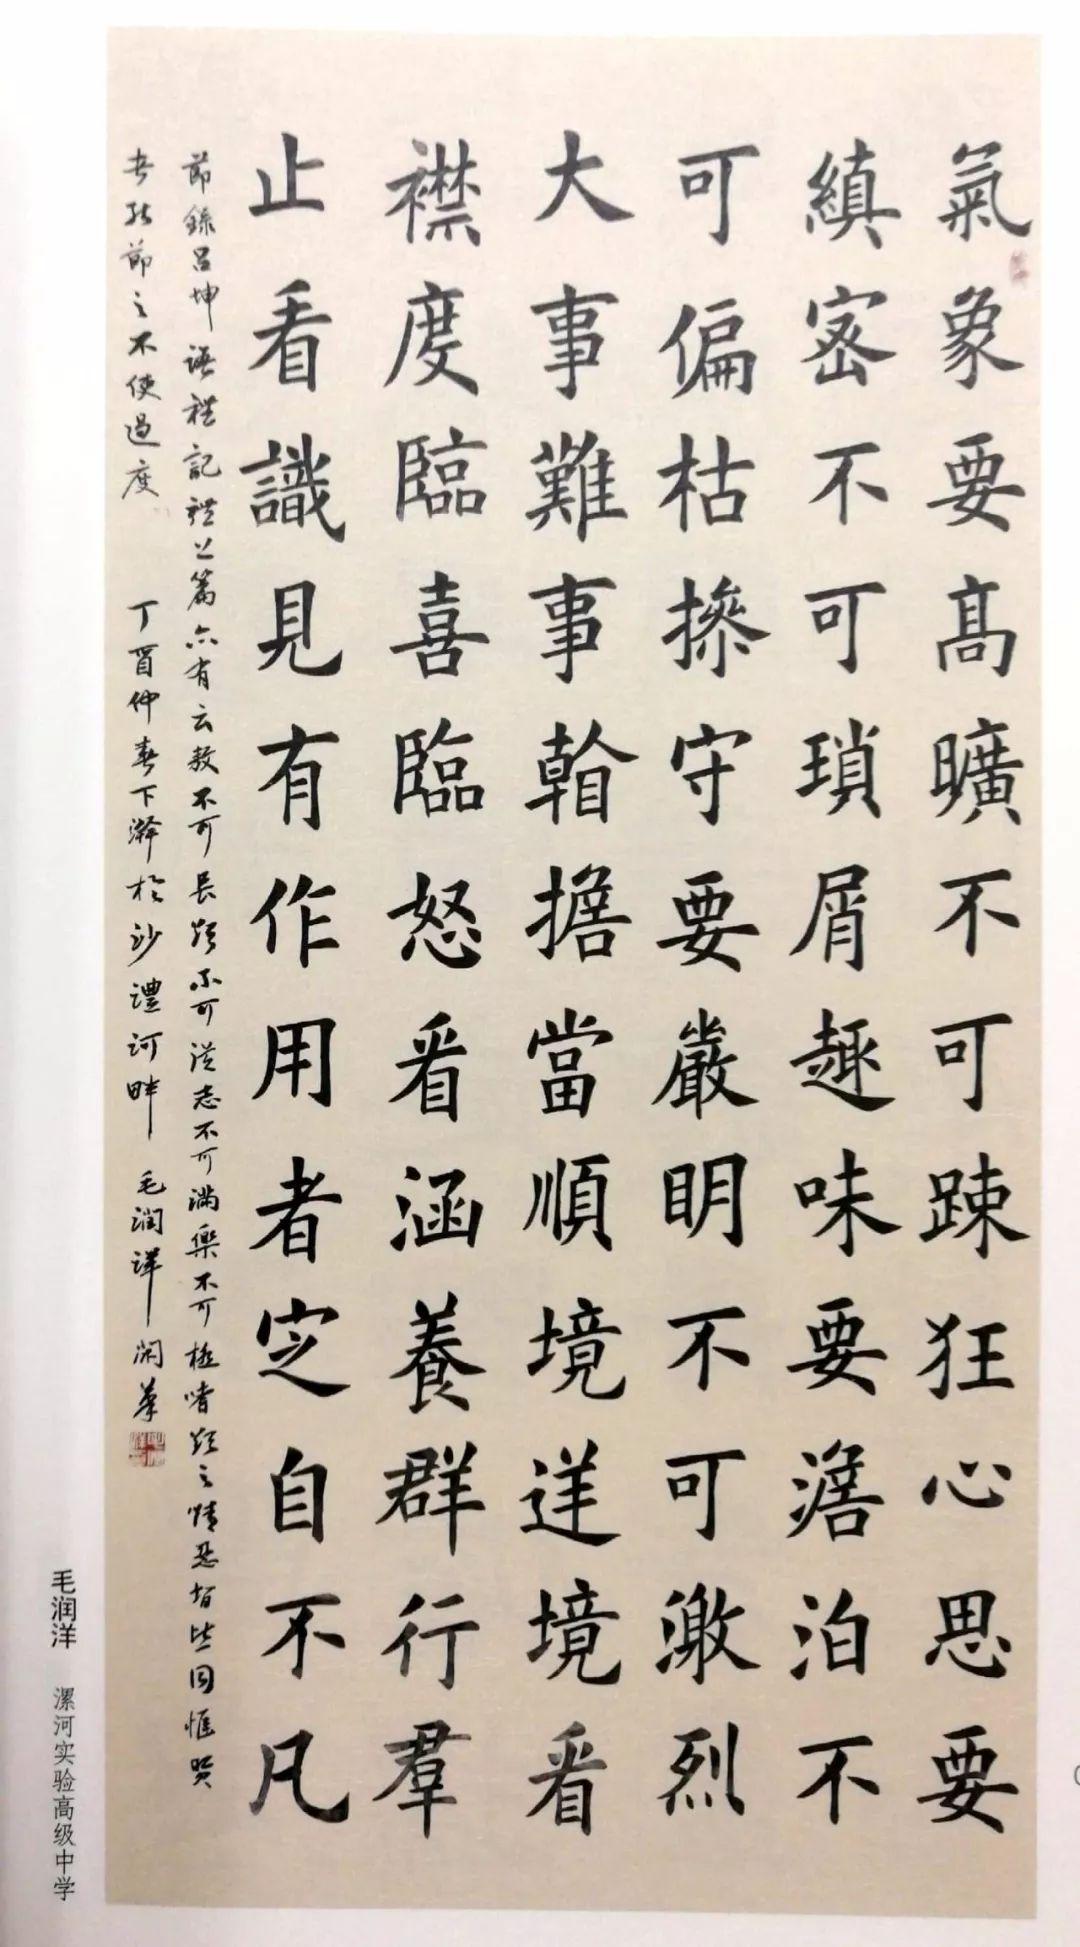 氣象要高曠不可踈狂心思要
縝宻不可瑣屑趣味要澹泊不
可偏枯操守要嚴明不可激烈
大事難事看擔當順境逆境看
襟度臨喜臨怒看涵養群行羣
止看識見有作用者定自不凡
節錄呂坤語禮記禮上篇亦有云敖不可長欲不可從志不可滿樂不可極嗜欲之情恐皆此同惟賢
者能節之不使過度 丁酉仲春下澣於沙澧河畔 毛润洋 闲筆
毛润洋 漯河实验高级中学